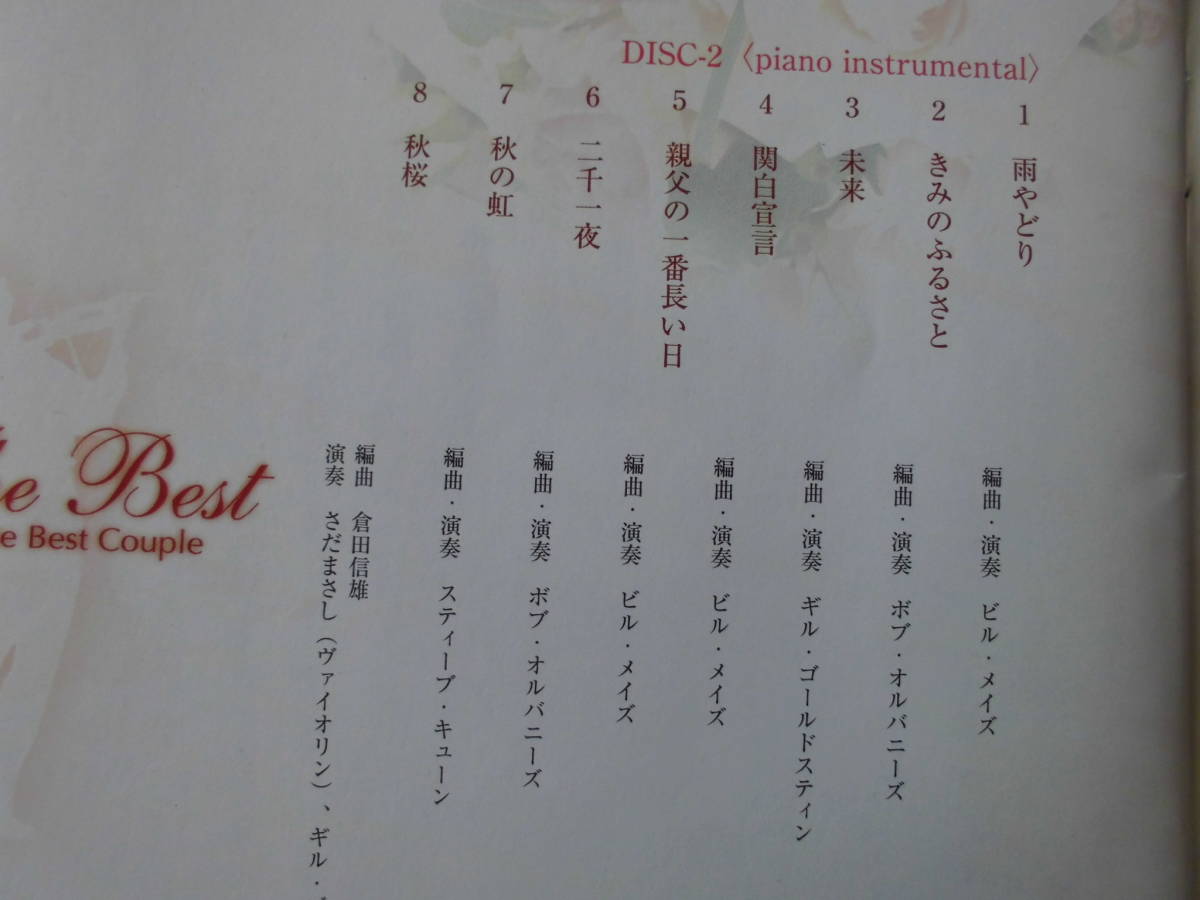 DISC-2〈piano instrumental〉
1 雨やどり
編曲・演奏 ビル・メイズ
2 きみのふるさと
編曲・演奏 ボブ・オルバニーズ
3 未来
編曲・演奏 ギル・ゴールドスティン
4 関白宣言
編曲・演奏 ビル・メイズ
5 親父の一番長い日
編曲・演奏 ビル・メイズ
6 二千一夜
編曲・演奏 ボブ・オルバニーズ
7 秋の虹
編曲・演奏 スティーブ・キューン
8 秋桜
編曲 倉田信雄
演奏 さだまさし(ヴァイオリン)、ギル・
Best
e Best Couple